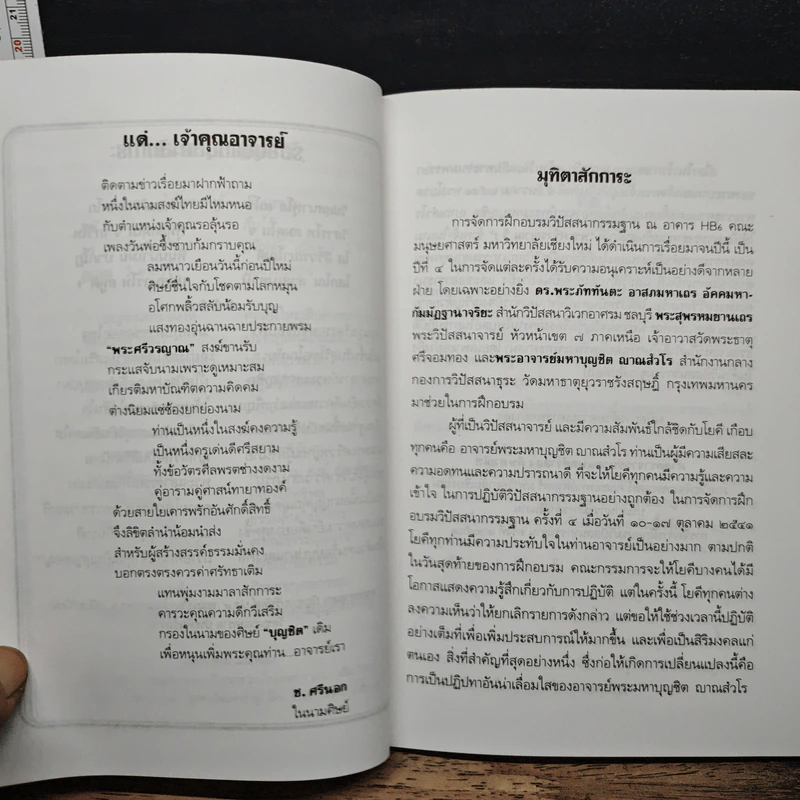 แด่... เจ้าคุณอาจารย์
ติดตามข่าวเรื่อยมาฝากฟ้าถาม
หนึ่งในนามสงฆ์ไทยมีไหมหนอ
กับตำแหน่งเจ้าคุณรอลุ้นรอ
เพลงวันพ่อซึ้งซาบก้มกราบคุณ
ลมหนาวเยือนวันนี้ก่อนปีใหม่
ศิษย์ชื่นใจกับโชคตามโลกหมุน
อโศกพลิ้วสลับน้อมรับบุญ
แสงทองอุ่นฉานฉายประกายพรม
"พระศรีวรญาณ" สงฆ์ขานรับ
กระแสจับนามเพราะดูเหมาะสม
เกียรติมหาบัณฑิตความคิดคม
ต่างนิยมแซ่ซ้องยกย่องนาม
ท่านเป็นหนึ่งในสงฆ์คงความรู้
เป็นหนึ่งครูเด่นดีศรีสยาม
ทั้งข้อวัตรศีลพรตช่างงดงาม
คู่อารามคู่ศาสน์ทายาทองค์
ด้วยสายใยเคารพรักอันศักดิ์สิทธิ์
จึงลิขิตลำนำน้อมนำส่ง
สำหรับผู้สร้างสรรค์ธรรมมั่นคง
บอกตรงตรงควรค่าศรัทธาเติม
แทนพุ่มงามมาลาสักการะ
คารวะคุณความดีกวีเสริม
กรองในนามของศิษย์ "บุญชิต" เดิม
เพื่อหนุนเพิ่มพระคุณท่าน...อาจารย์เรา
ช. ศรีนอก
ในนามศิษย์
มุทิตาสักการะ
การจัดการฝึกอบรมวิปัสสนากรรมฐาน ณ อาคาร HB๖ คณะ
มนุษยศาสตร์ มหาวิทยาลัยเชียงใหม่ ได้ดำเนินการเรื่อยมาจนปีนี้ เป็น
ปีที่ ๔ ในการจัดแต่ละครั้งได้รับความอนุเคราะห์เป็นอย่างดีจากหลาย
ฝ่าย โดยเฉพาะอย่างยิ่ง ดร.พระภัททันตะ อาสภมหาเถร อัคคมหา-
กัมมัฏฐานาจริยะ สำนักวิปัสสนาวิเวกอาศรม ชลบุรี พระสุพรหมยานเถร
พระวิปัสสนาจารย์ หัวหน้าเขต ๗ ภาคเหนือ เจ้าอาวาสวัดพระธาตุ
ศรีจอมทอง และพระอาจารย์มหาบุญชิต ญาณสํวโร สำนักงานกลาง
กองการวิปัสสนาธุระ วัดมหาธาตุยุวราชรังสฤษฎิ์ กรุงเทพมหานคร
มาช่วยในการฝึกอบรม
ผู้ที่เป็นวิปัสสนาจารย์ และมีความสัมพันธ์ใกล้ชิดกับโยคี เกือบ
ทุกคนคือ อาจารย์พระมหาบุญชิต ญาณสํวโร ท่านเป็นผู้มีความเสียสละ
ความอดทนและความปรารถนาดี ที่จะให้โยคีทุกคนมีความรู้และความ
เข้าใจ ในการปฏิบัติวิปัสสนากรรมฐานอย่างถูกต้อง ในการจัดการฝึก
อบรมวิปัสสนากรรมฐาน ครั้งที่ ๔ เมื่อวันที่ ๑๐-๑๗ ตุลาคม ๒๕๔๑
โยคีทุกท่านมีความประทับใจในท่านอาจารย์เป็นอย่างมาก ตามปกติ
ในวันสุดท้ายของการฝึกอบรม คณะกรรมการจะให้โยคีบางคนได้มี
โอกาสแสดงความรู้สึกเกี่ยวกับการปฏิบัติ แต่ในครั้งนี้ โยคีทุกคนต่าง
ลงความเห็นว่าให้ยกเลิกรายการดังกล่าว แต่ขอให้ใช้ช่วงเวลานี้ปฏิบัติ
อย่างเต็มที่เพื่อเพิ่มประสบการณ์ให้มากขึ้น และเพื่อเป็นสิริมงคลแก่
ตนเอง สิ่งที่สำคัญที่สุดอย่างหนึ่ง ซึ่งก่อให้เกิดการเปลี่ยนแปลงนี้คือ
การเป็นปฏิปทาอันน่าเลื่อมใสของอาจารย์พระมหาบุญชิต ญาณสํวโร
20
21